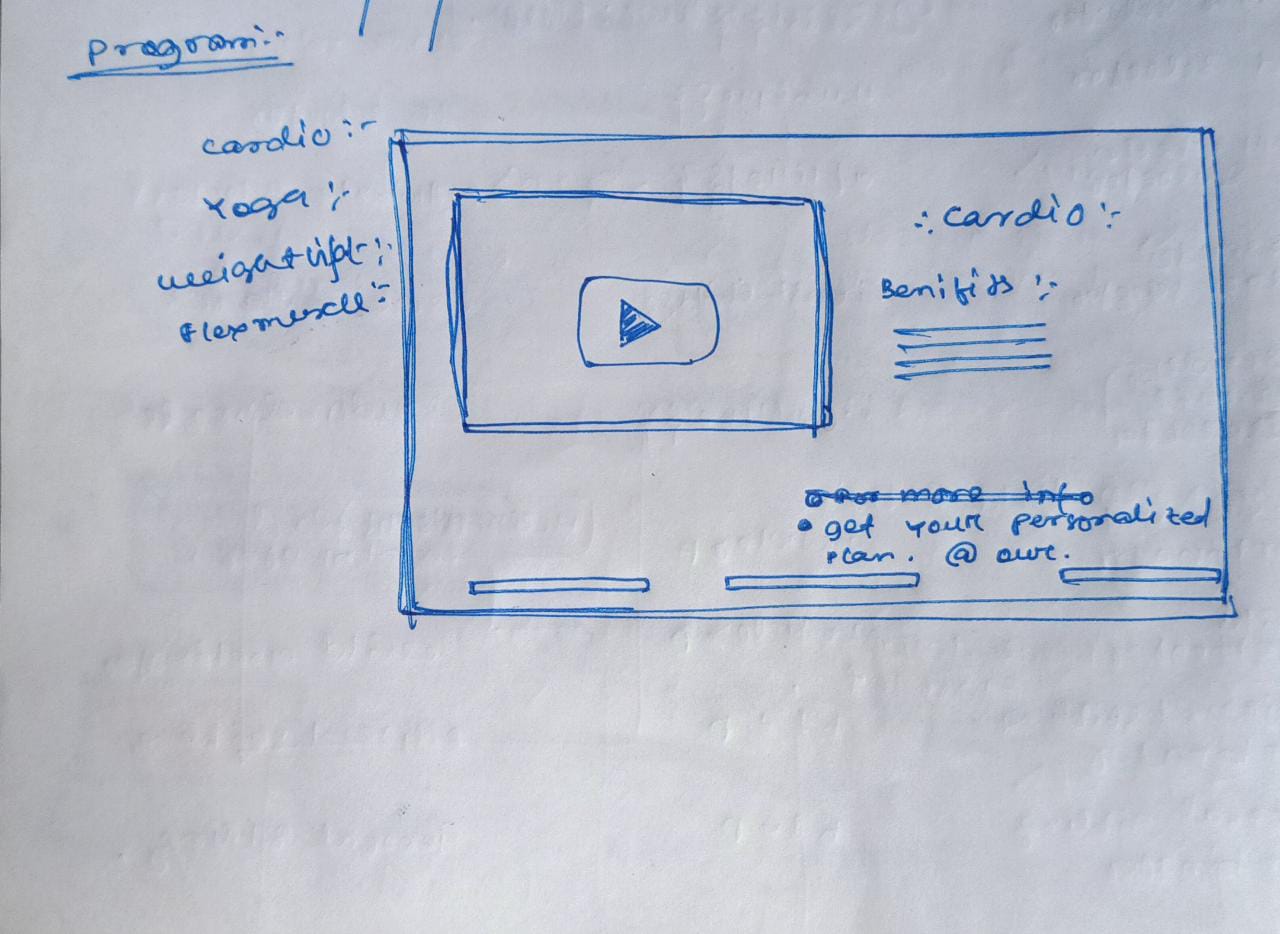 Program:-
cardio :-
Yoga :-
weightlift :-
flexmuscle :-
:. Cardio :-
Benifits :-
for more info
• get your personalized
plan. @ owr.